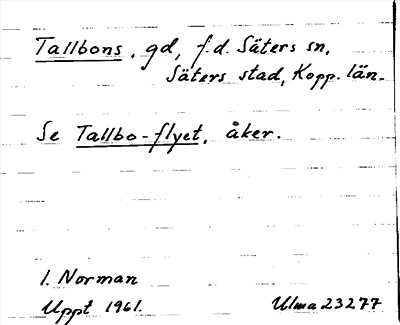 Tallbons, gd, f.d. Säters sn,
Säters stad, Kopp. län.
Se Tallbo-flyet, åker.
I. Norman
Uppt 1961.
Ulma 23277